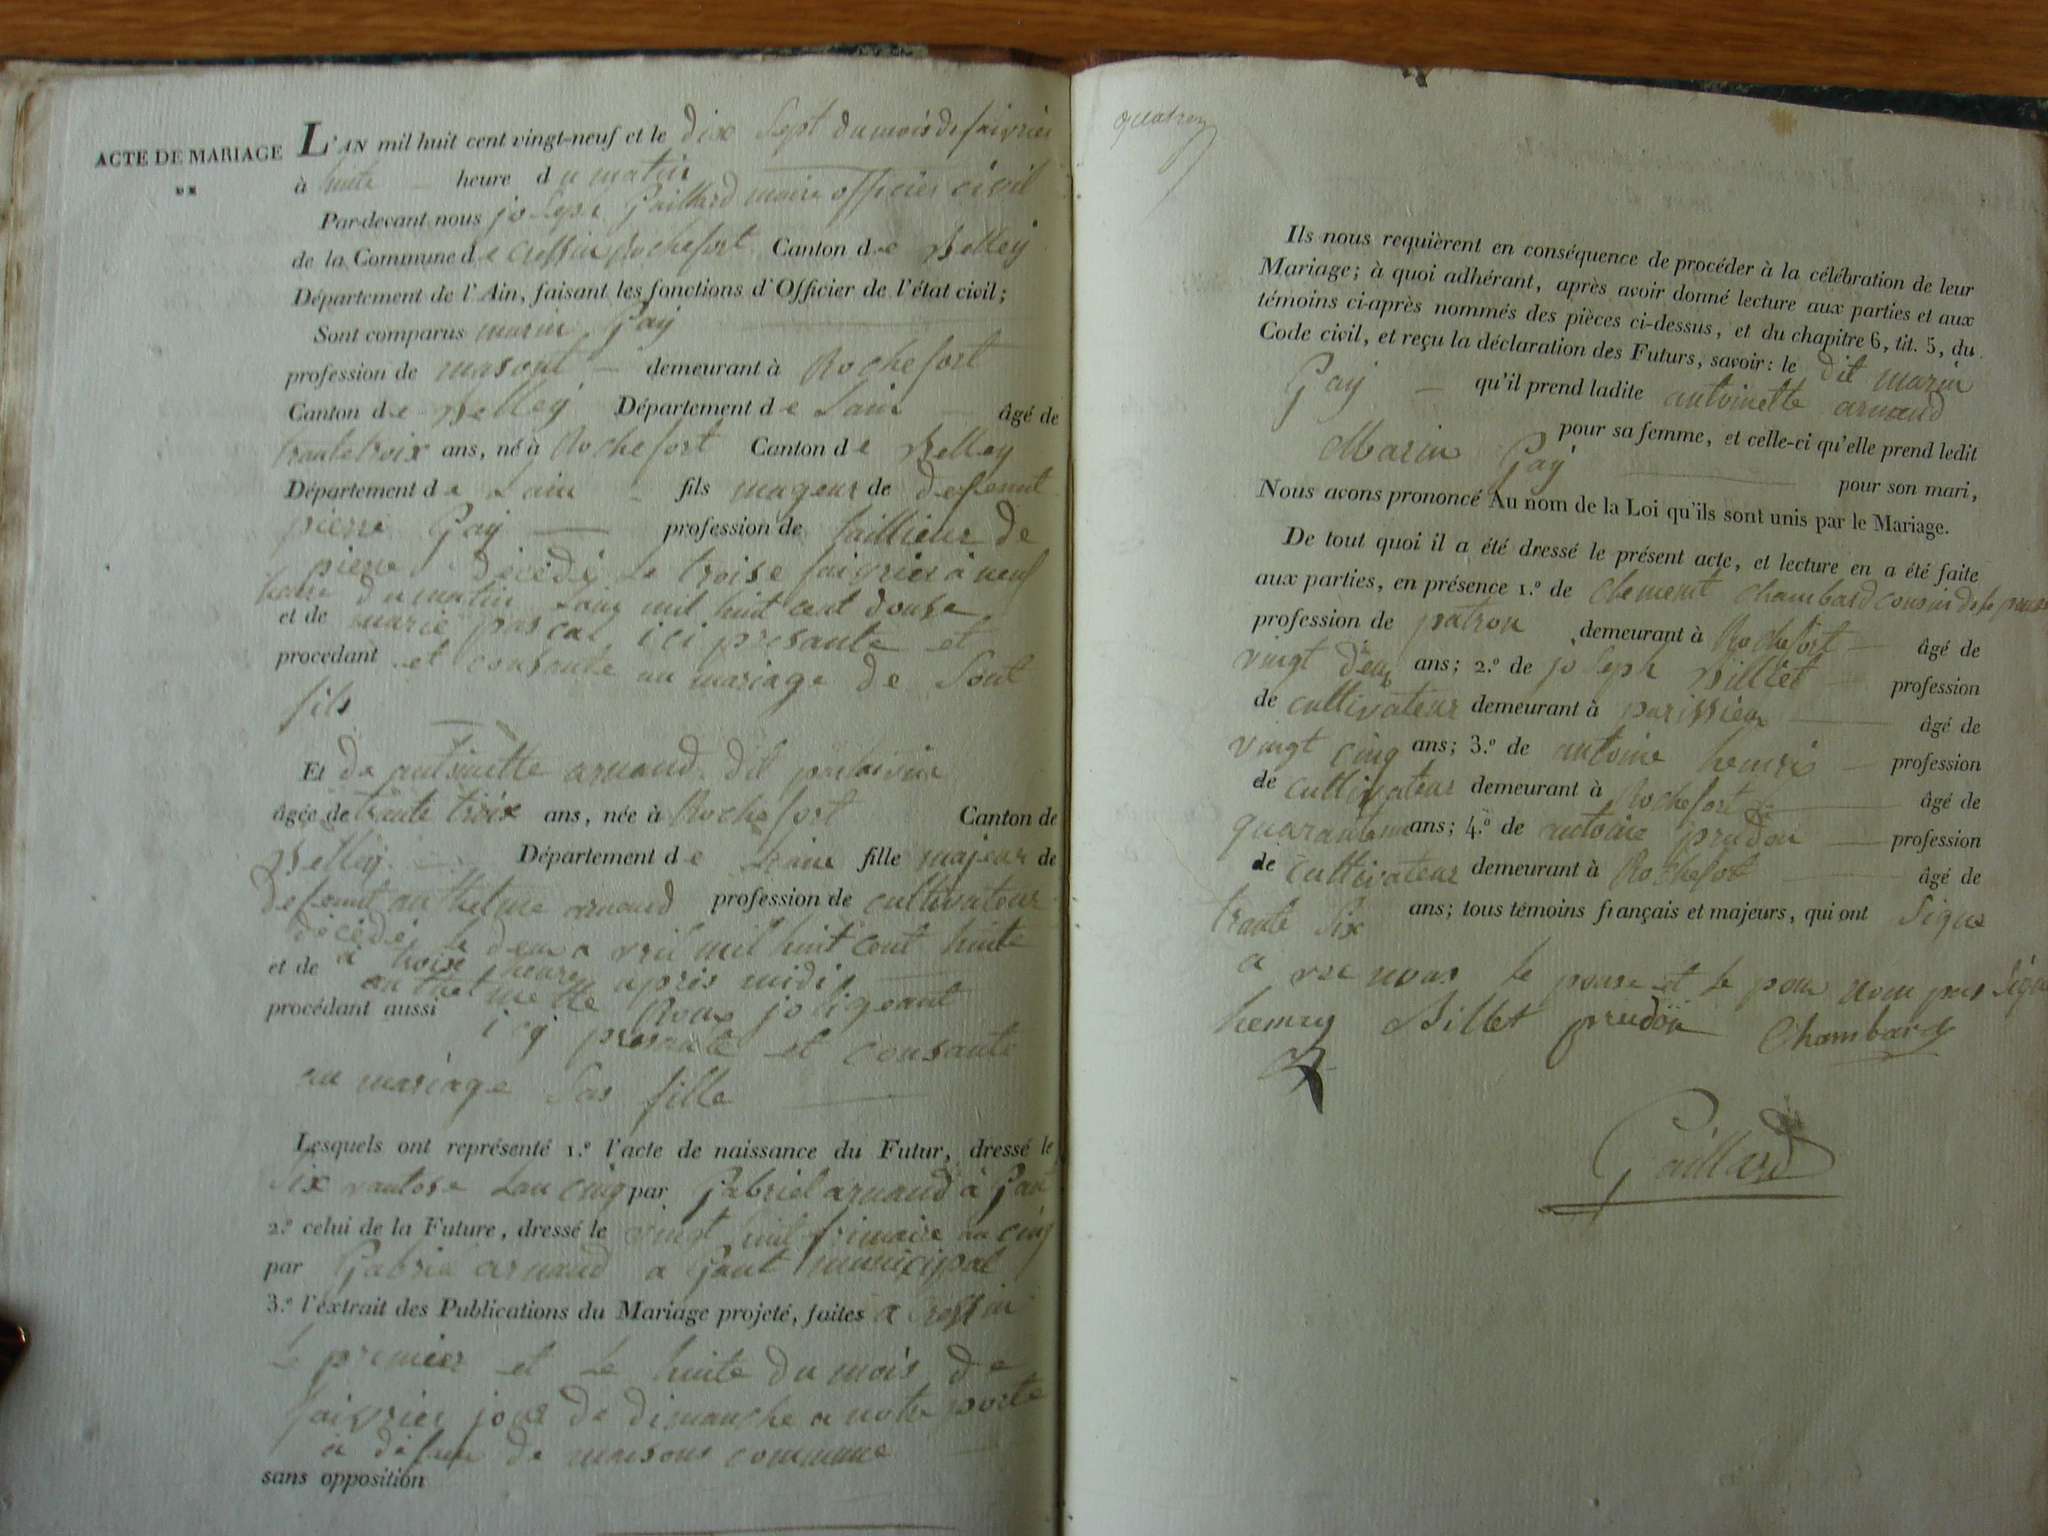 ACTE DE MARIAGE
L'AN mil huit cent vingt-neuf et le dix sept du mois de faivrier
à huite heure du matin
Par-devant nous joseph Gaillard maire officier civil
de la Commune de Cressin Rochefort Canton de Belley
Département de l'Ain, faisant les fonctions d'Officier de l'état civil;
Sont comparus marin Gay
profession de masont demeurant à Rochefort
Canton de Belley Département de Lain âgé de
trante troix ans, né à Rochefort Canton de Belley
Département de Lain fils mageur de defeunt
pierre Gay profession de taillieur de
pierre décédé le troise faivrier à neuf
heure du matin Lain mil huit cent douse
et de marie pascal ici presante et
procédant et consante au mariage de sont
fils
Et de antoinette arnaud dit
âgée de trante troix ans, née à Rochefort Canton de
Belley Département de Laine fille majeur de
defeunt anthelme arnaud profession de cultivateur
décédé le deux avril mil huit cent huite
à troix heure apris midi
et de anthelmette Roux
procédant aussi icy presante et consante
au mariage sas fille
Lesquels ont représenté 1.º l'acte de naissance du Futur, dressé le
six vantose Lan cinq par Gabriel arnaud à Gant
2.º celui de la Future, dressé le vingt huit frimaire an cinq
par Gabriel arnaud a Gant municipal
3.º l'extrait des Publications du Mariage projeté, faites a Cressin
le premier et le huite du mois de
faivrier jour de dimanche a notre porte
a défeu de maisons commune
sans opposition
Ils nous requièrent en conséquence de procéder à la célébration de leur
Mariage; à quoi adhérant, après avoir donné lecture aux parties et aux
témoins ci-après nommés des pièces ci-dessus, et du chapitre 6, tit. 5, du
Code civil, et reçu la déclaration des Futurs, savoir: le dit marin
Gay qu'il prend ladite antoinette arnaud
pour sa femme, et celle-ci qu'elle prend ledit
Marin Gay pour son mari,
Nous avons prononcé Au nom de la Loi qu'ils sont unis par le Mariage.
De tout quoi il a été dressé le présent acte, et lecture en a été faite
aux parties, en présence 1.º de Clement Chambard cousin de le
profession de patron demeurant à Rochefort âgé de
vingt deux ans; 2.º de joseph Billiet profession
de cultivateur demeurant à parissieux âgé de
vingt cinq ans; 3.º de antoine henri profession
de cultivateur demeurant à Rochefort âgé de
quarante ans; 4.º de antoine prudon profession
de cultivateur demeurant à Rochefort âgé de
trante six ans; tous témoins français et majeurs, qui ont signe
a vec nous le et le nom pas signe
henry Billet prudon Chambard
Gaillard